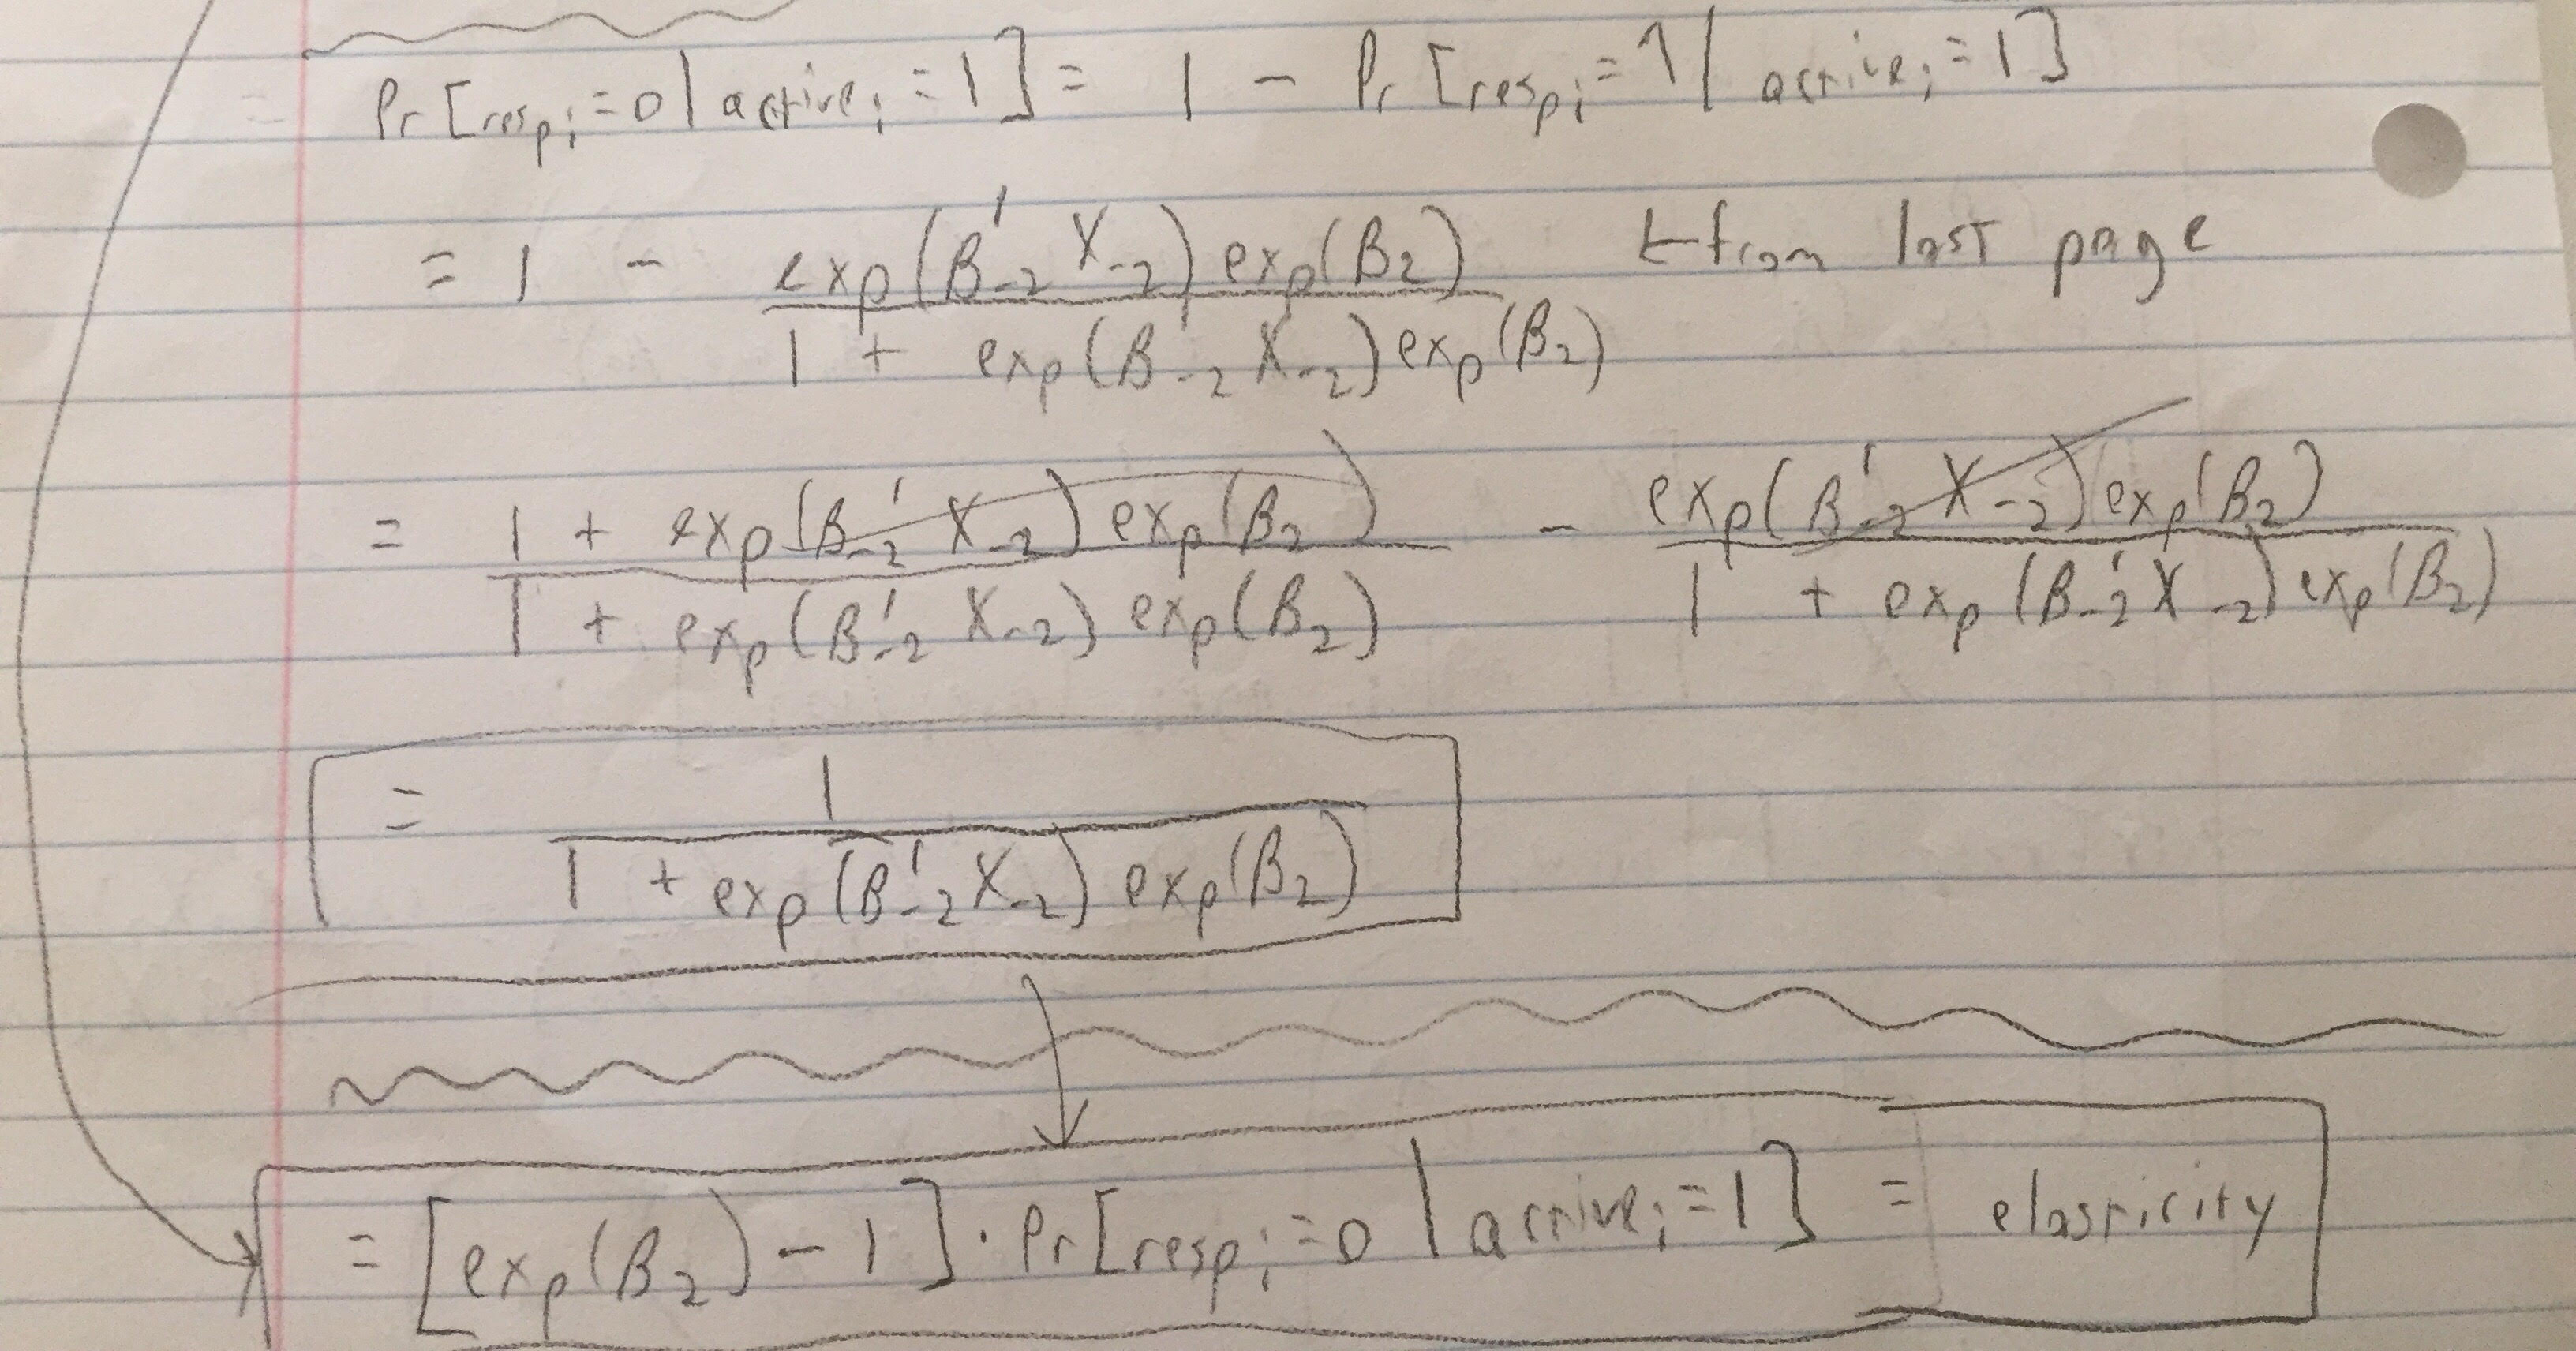 Pr[resp_i = 0 | active_i = 1] = 1 - Pr[resp_i = 1 | active_i = 1]
= 1 - \frac{exp(β'_{-2} X_{-2}) exp(β_2)}{1 + exp(β'_{-2} X_{-2}) exp(β_2)} ← from last page
= \frac{1 + exp(β'_{-2} X_{-2}) exp(β_2)}{1 + exp(β'_{-2} X_{-2}) exp(β_2)} - \frac{exp(β'_{-2} X_{-2}) exp(β_2)}{1 + exp(β'_{-2} X_{-2}) exp(β_2)}
= \frac{1}{1 + exp(β'_{-2} X_{-2}) exp(β_2)}
= [exp(β_2) - 1] · Pr[resp_i = 0 | active_i = 1] = elasticity